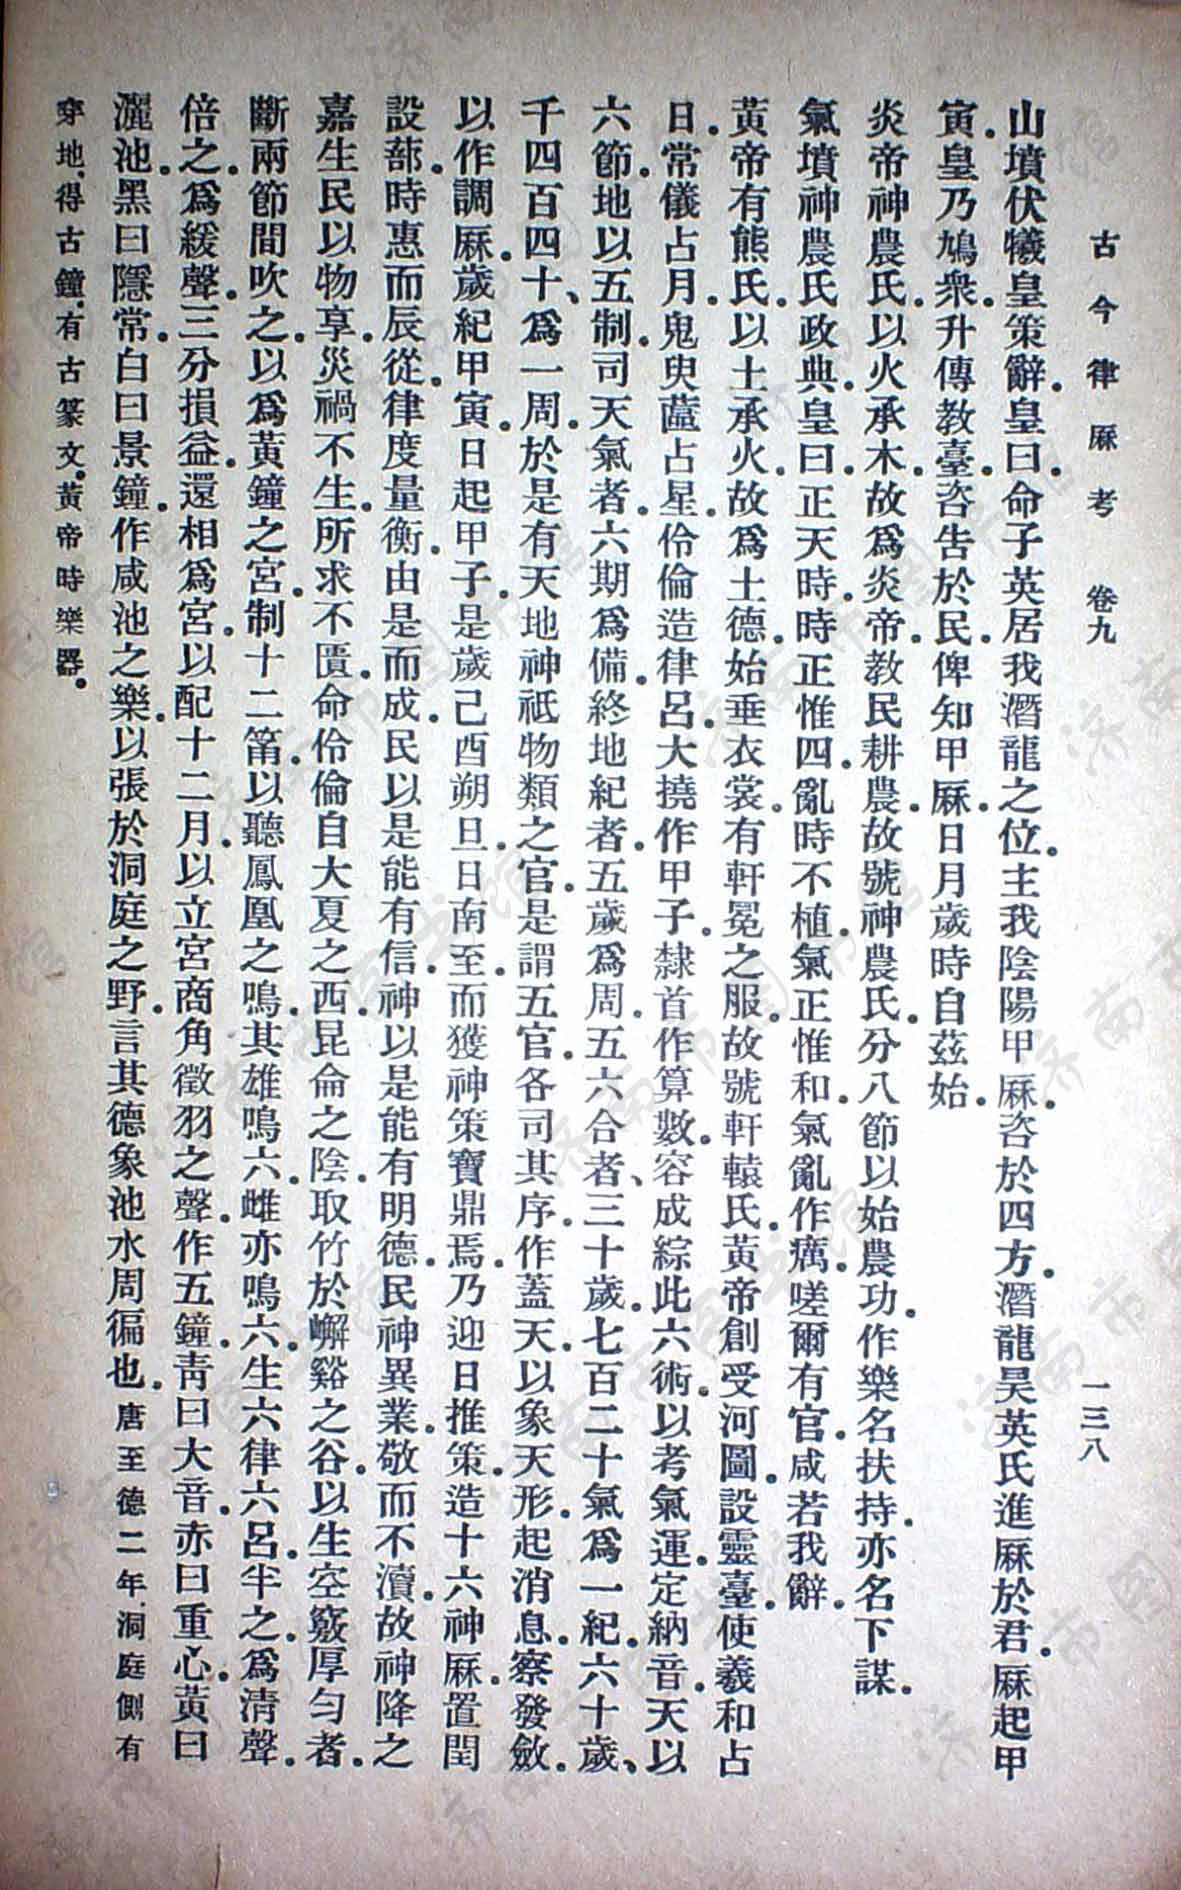 古今律厤考 卷九 一三八
山墳伏犧皇策辭皇曰命子英居我潛龍之位主我陰陽甲厤咨於四方潛龍昊英氏進厤於君厤起甲
寅皇乃鳩衆升傳教臺咨告於民俾知甲厤日月歲時自茲始
炎帝神農氏以火承木故爲炎帝教民耕農故號神農氏分八節以始農功作樂名扶持亦名下謀
氣墳神農氏政典皇曰正天時時正惟四亂時不植氣正惟和氣亂作癘嗟爾有官咸若我辭
黃帝有熊氏以土承火故爲土德始垂衣裳有軒冕之服故號軒轅氏黃帝創受河圖設靈臺使羲和占
日常儀占月鬼臾蓲占星伶倫造律呂大撓作甲子隸首作算數容成綜此六術以考氣運定納音天以
六節地以五制司天氣者六期爲備終地紀者五歲爲周五六合者三十歲七百二十氣爲一紀六十歲
千四百四十爲一周於是有天地神祇物類之官是謂五官各司其序作蓋天以象天形起消息察發斂
以作調厤歲紀甲寅日起甲子是歲己酉朔旦日南至而獲神策寶鼎焉乃迎日推策造十六神厤置閏
設蔀時惠而辰從律度量衡由是而成民以是能有信神以是能有明德民神異業敬而不瀆故神降之
嘉生民以物享災禍不生所求不匱命伶倫自大夏之西昆侖之陰取竹於嶰谿之谷以生空竅厚勻者
斷兩節間吹之以爲黃鐘之宮制十二筩以聽鳳凰之鳴其雄鳴六雌亦鳴六生六律六呂半之爲清聲
倍之爲緩聲三分損益還相爲宮以配十二月以立宮商角徵羽之聲作五鐘靑曰大音赤曰重心黃曰
灑池黑曰隱常白曰景鐘作咸池之樂以張於洞庭之野言其德象池水周徧也唐至德二年洞庭側有
穿地得古鐘有古篆文黃帝時樂器